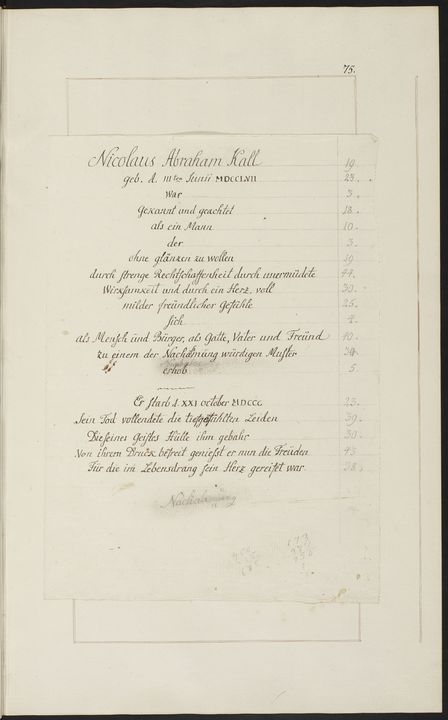 75.
Nicolaus Abraham Kall 19
geb. d. IIIten Junii MDCCLVII 23.
War 3.
Gekannt und geachtet 18.
als ein Mann 10.
der 3.
ohne glänzen zu wollen 19
durch strenge Rechtschaffenheit durch unermüdete 44.
Wirksamkeit und durch ein Herz voll 30.
milder freundlicher Gefühle 25.
sich 4.
als Mensch und Bürger, als Gatte, Vater und Freund 40.
zu einem der Nachahmung würdigen Muster
erhob 5.
Er starb d. XXI october MDCCC 23.
Sein Tod vollendete die tiefgefühlten Leiden 39.
Die seines Geistes Hülle ihm gebahr 30.
Von ihrem Druck befreit genießt er nun die Freuden 43
Für die im Lebensdrang sein Herz gereifet war 38.
Nachahmung
173